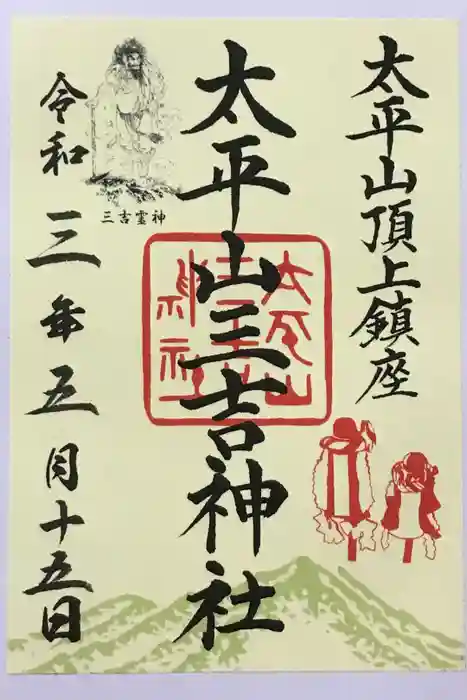 太平山頂上鎮座
太平山三吉神社
太平山三吉神社
三吉霊神
令和三年五月十五日